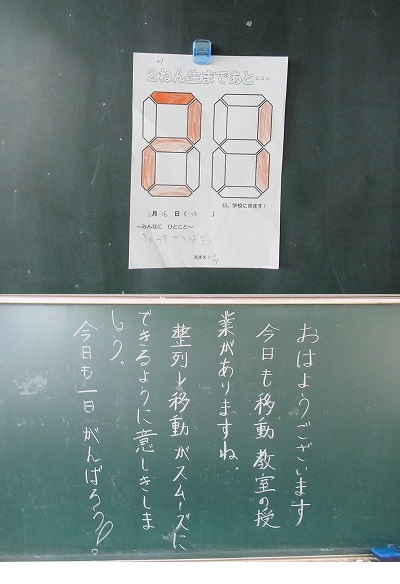 2ねん生まであと…
21
日、学校に来ます!
2月18日(水)
～みんなに ひとこと～
きょうもがんばろう
おはようございます
今日も移動教室の授
業がありますね。
整列と移動がスムーズに
できるように意しきしま
しょう。
今日も一日がんばろう!